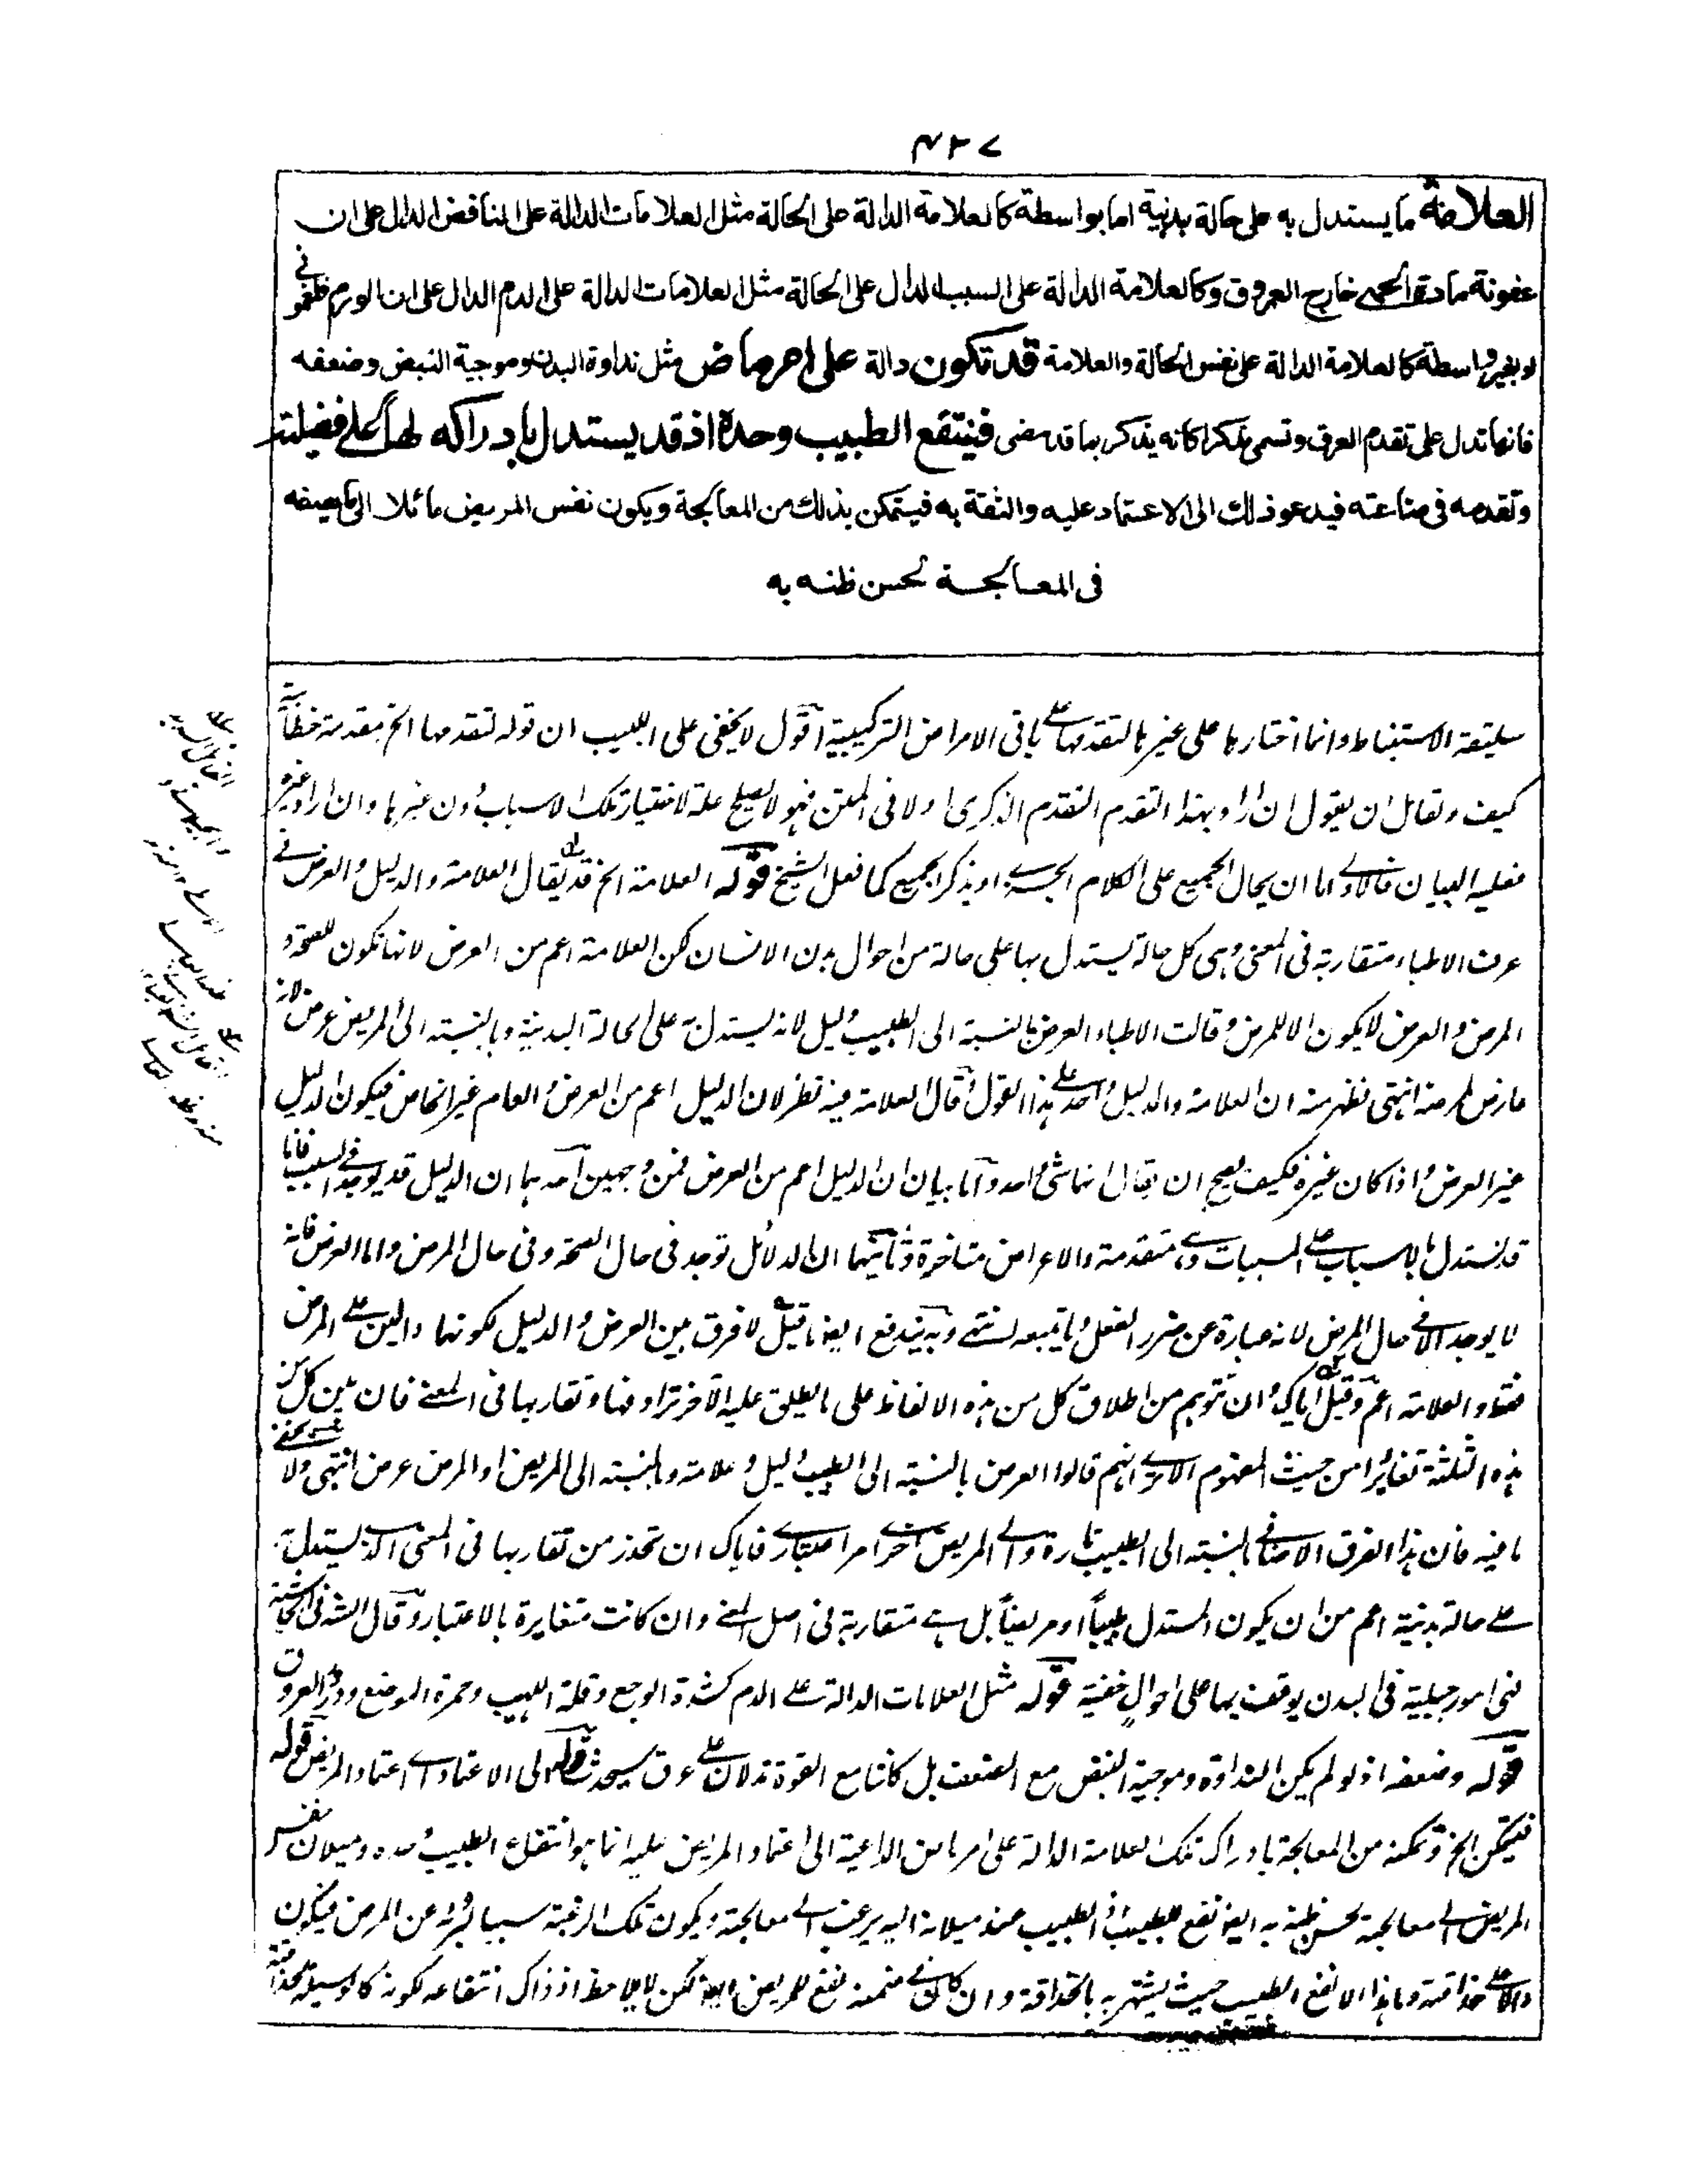 ٤٢٧
العلامة ما يستدل به على حالة بدنية اما بواسطة كالعلامة الدالة على الحالة مثل العلامات الدالة على النافض الدال على ان
عفونة مادة الحمى خارج العروق وكالعلامة الدالة على السبب الدال على الحالة مثل العلامات الدالة على الدم الدال على ان الورم
او بغير واسطة كالعلامة الدالة على نفس الحالة والعلامة قد تكون دالة على امر ماض مثل نداوة البدن وموجية النبض وضعفه
فانها تدل على تقدم العرق وتسمى مذكرا كانه يذكر بما قد مضى فينتفع الطبيب وحده اذ قد يستدل بادراكه لها على فضيلته
وتقدمه فى صناعته فيدعو ذلك الى الاعتماد عليه والثقة به فيتمكن بذلك من المعالجة ويكون نفس المريض مائلا الى ما يصفه
فى المعالجة لحسن ظنه به
سليقة الاستنباط وانما اختارها على غيرها لتقدمها على باقى الامراض التركيبية اقول لا يخفى على اللبيب ان قوله لتقدمها الخ مقدمة
كيف ولقائل ان يقول ان اراد بهذا التقدم التقدم الذكرى او لا فى المتن فهو لا يصلح علة لاختيار تلك الاسباب دون غيرها وان اراد غيره
فعليه البيان فالاولى اما ان يحال الجميع على الكلام او يذكر الجميع كما فعل الشيخ قوله العلامة الخ قد يقال العلامة والدليل والعرض فى
عرف الاطباء متقاربة فى المعنى وهى كل حالة يستدل بها على حالة من احوال بدن الانسان لكن العلامة اعم من العرض لانها تكون للصحة و
المرض والعرض لا يكون الا للمرض وقالت الاطباء العرض بالنسبة الى الطبيب دليل لانه يستدل به على الحالة البدنية وبالنسبة الى المريض عرض لانه
عارض لمرضه انتهى فظهر منه ان العلامة والدليل واحد على هذا القول وقال العلامة فيه نظر لان الدليل اعم من العرض والعام غير الخاص فيكون الدليل
غير العرض واذا كان غيره فكيف يصح ان يقال انها شئ واحد واما بيان ان الدليل اعم من العرض فمن وجهين احدهما ان الدليل قد يوجد فى السبب فانا
قد نستدل بالاسباب على المسببات وهى متقدمة والاعراض متاخرة وثانيهما ان الدلائل توجد فى حال الصحة وفى حال المرض واما العرض فانه
لا يوجد الا فى حال المرض لانه عبارة عن ضرر الفعل وما يتبعه انتهى وبه يندفع ايضا ما قيل لا فرق بين العرض والدليل لكونهما دالين على المرض
فقط والعلامة اعم وقيل اياك ان تتوهم من اطلاق كل من هذه الالفاظ على ما يطلق عليه الآخر ترادفها وتقاربها فى المعنى فان بين كل من
هذه الثلثة تغائرا من حيث المفهوم الا ترى انهم قالوا العرض بالنسبة الى الطبيب دليل وعلامة وبالنسبة الى المريض او المرض عرض انتهى ولا يخفى
ما فيه فان هذا الفرق الاضافى بالنسبة الى الطبيب تارة والى المريض اخرى امر اعتبارى فاياك ان تحذر من تقاربها فى المعنى الذى يستدل به
على حالة بدنية اعم من ان يكون المستدل طبيبا او مريضا بل هى متقاربة فى اصل المعنى وان كانت متغايرة بالاعتبار وقال الشه فى الحاشية
هى امور جبلية فى البدن يوقف بها على احوال خفية قوله مثل العلامات الدالة على الدم كشدة الوجع وقلة اللهيب وحمرة الموضع ودرور العروق
قوله وضعفه اذ لو لم يكن النداوة وموجية النبض مع الضعف بل كانتا مع القوة تدلان على عرق سيحدث قوله الى الاعتماد اى اعتماد المريض قوله
فيتمكن الخ وتمكنه من المعالجة بادراك تلك العلامة الدالة على امر ماض الداعية الى اعتماد المريض عليه انما هو انتفاع الطبيب وحده وميلان نفس
المريض الى معالجته لحسن ظنه به ايضا نفع للطبيب اذ الطبيب عند ميلانه اليه يرغب الى معالجته ويكون تلك الرغبة سببا لبرئه عن المرض فيكون
دالا على حذاقته وما هذا الا نفع الطبيب حيث يشتهر به بالحذاقة وان كان فى ضمنه نفع للمريض ايضا لكن لا يلاحظ اذ ذاك انتفاعه لكونه كالوسيلة